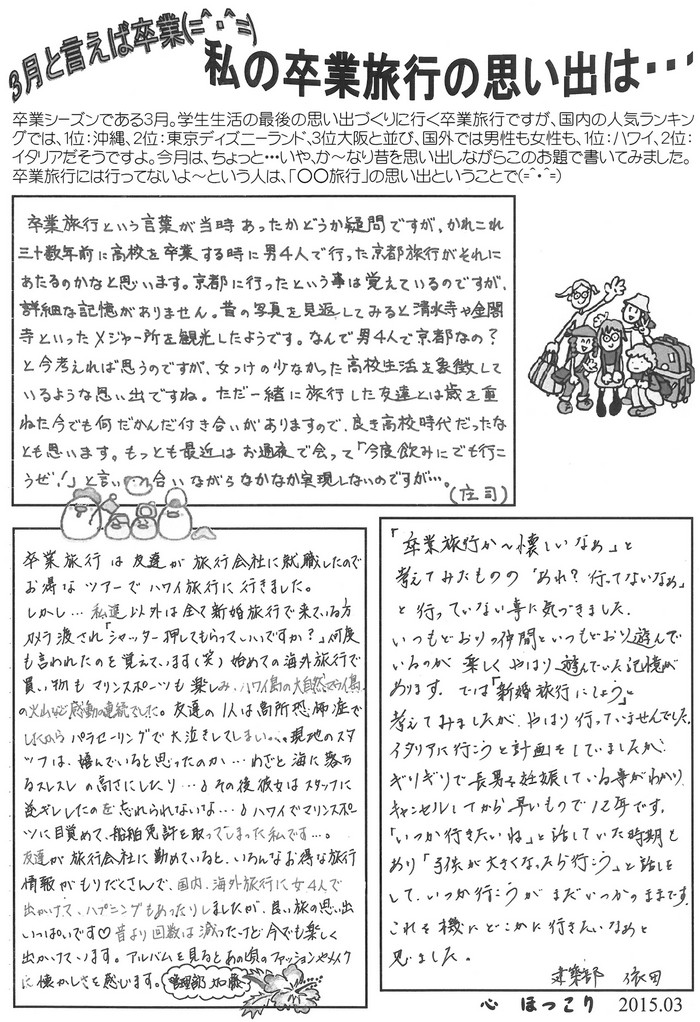 3月と言えば卒業(=^・^=)
私の卒業旅行の思い出は・・・
卒業シーズンである3月。学生生活の最後の思い出づくりに行く卒業旅行ですが、国内の人気ランキン
グでは、1位：沖縄、2位：東京ディズニーランド、3位大阪と並び、国外では男性も女性も、1位：ハワイ、2位：
イタリアだそうですよ。今月は、ちょっと…いや、か～なり昔を思い出しながらこのお題で書いてみました。
卒業旅行には行ってないよ～という人は、「〇〇旅行」の思い出ということで(=^・^=)
卒業旅行という言葉が当時あったかどうか疑問ですが、かれこれ
三十数年前に高校を卒業する時に男4人で行った京都旅行がそれに
あたるのかなと思います。京都に行ったという事は覚えているのですが、
詳細な記憶がありません。昔の写真を見返してみると清水寺や金閣
寺といったメジャー所を観光したようです。なんで男4人で京都なの？
と今考えれば思うのですが、女っけの少なかった高校生活を象徴して
いるような思い出ですね。ただ一緒に旅行した友達とは歳を重
ねた今でも何だかんだ付き合いがありますので、良き高校時代だったな
とも思います。もっとも最近はお通夜で会って「今度飲みにでも行こ
うぜ！」と言い合いながらなかなか実現しないのですが…。
(庄司)
卒業旅行は友達が旅行会社に就職したので
お得なツアーでハワイ旅行に行きました。
しかし…私達以外は全て新婚旅行で来ている方
カメラ渡され「シャッター押してもらっていいですか？」何度
も言われたのを覚えています(笑)始めての海外旅行で
買い物もマリンスポーツも楽しみ、ハワイ島の大自然でマウイ島
の火山など感動の連続でした。友達の1人は高所恐怖症で
しながらパラセーリングで大泣きしてしまい…。現地のスタ
ッフは、嬉んでいると思ったのか…わざと海に落ち
るスレスレの高さにしたり…♪その後彼女はスタッフに
逆ギレしたのを忘れられないな…♪ハワイでマリンスポー
ツに目覚めて、船舶免許を取ってしまった私です…。
友達が旅行会社に勤めていると、いろんなお得な旅行
情報がもりだくさんで、国内、海外旅行に女4人で
出かけて、ハプニングもあったりしましたが、良い旅の思い出
いっぱいです♡昔より回数は減ったけど今でも楽しく
出かけています。アルバムを見るとあの頃のファッションやメイク
に懐かしさを感じます。
管理部 加藤
「卒業旅行か～懐しいなぁ」と
考えてみたものの「あれ？行ってないなぁ」
と行っていない事に気づきました。
いつもどおりの仲間といつもどおり遊んで
いるのが楽しくやはり遊んでいた記憶が
あります。では「新婚旅行にしよう」と
考えてみましたが、やはり行っていませんでした。
イタリアに行こうと計画をしていましたが、
ギリギリで長男を妊娠している事がわかり、
キャンセルしてから早いもので12年です。
「いつか行きたいね」と話していた時期も
あり「子供が大きくなったら行こう」と話を
して、いつか行こうがまだいつかのままです。
これを機にどこかに行きたいなぁと
思いました。
建築部 依田
心 ほっこり 2015.03